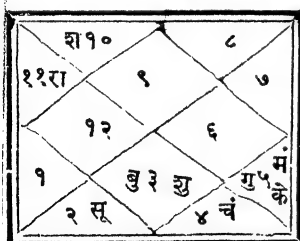 श १० ८
११ रा ९ ७
१२ ६
१ बु ३ शु गु ५ मं के
२ सू ४ चं